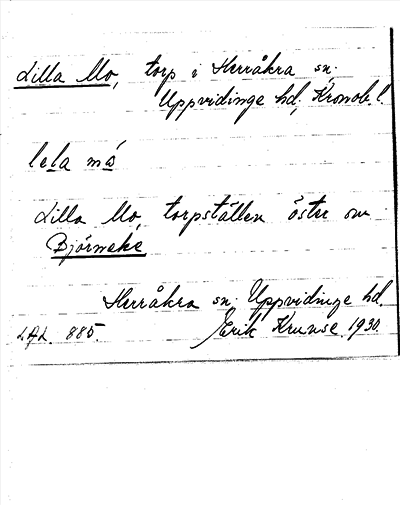 Lilla Mo, torp i Herråkra sn.
Uppvidinge hd, Kronob. l.
lela mo
Lilla Mo, torpställen öster om
Björneke
Herråkra sn, Uppvidinge hd.
LAL. 885. Erik Krunse 1930